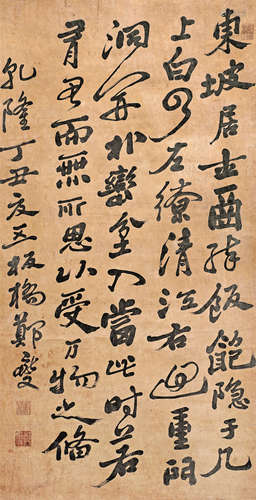 東坡居士酒醉飯飽隐于几
上白雲左繚清江右迴重門
洞開林巒坌入當此時若
有思而無所思以受万物之備
乾隆丁丑夏五板橋鄭燮